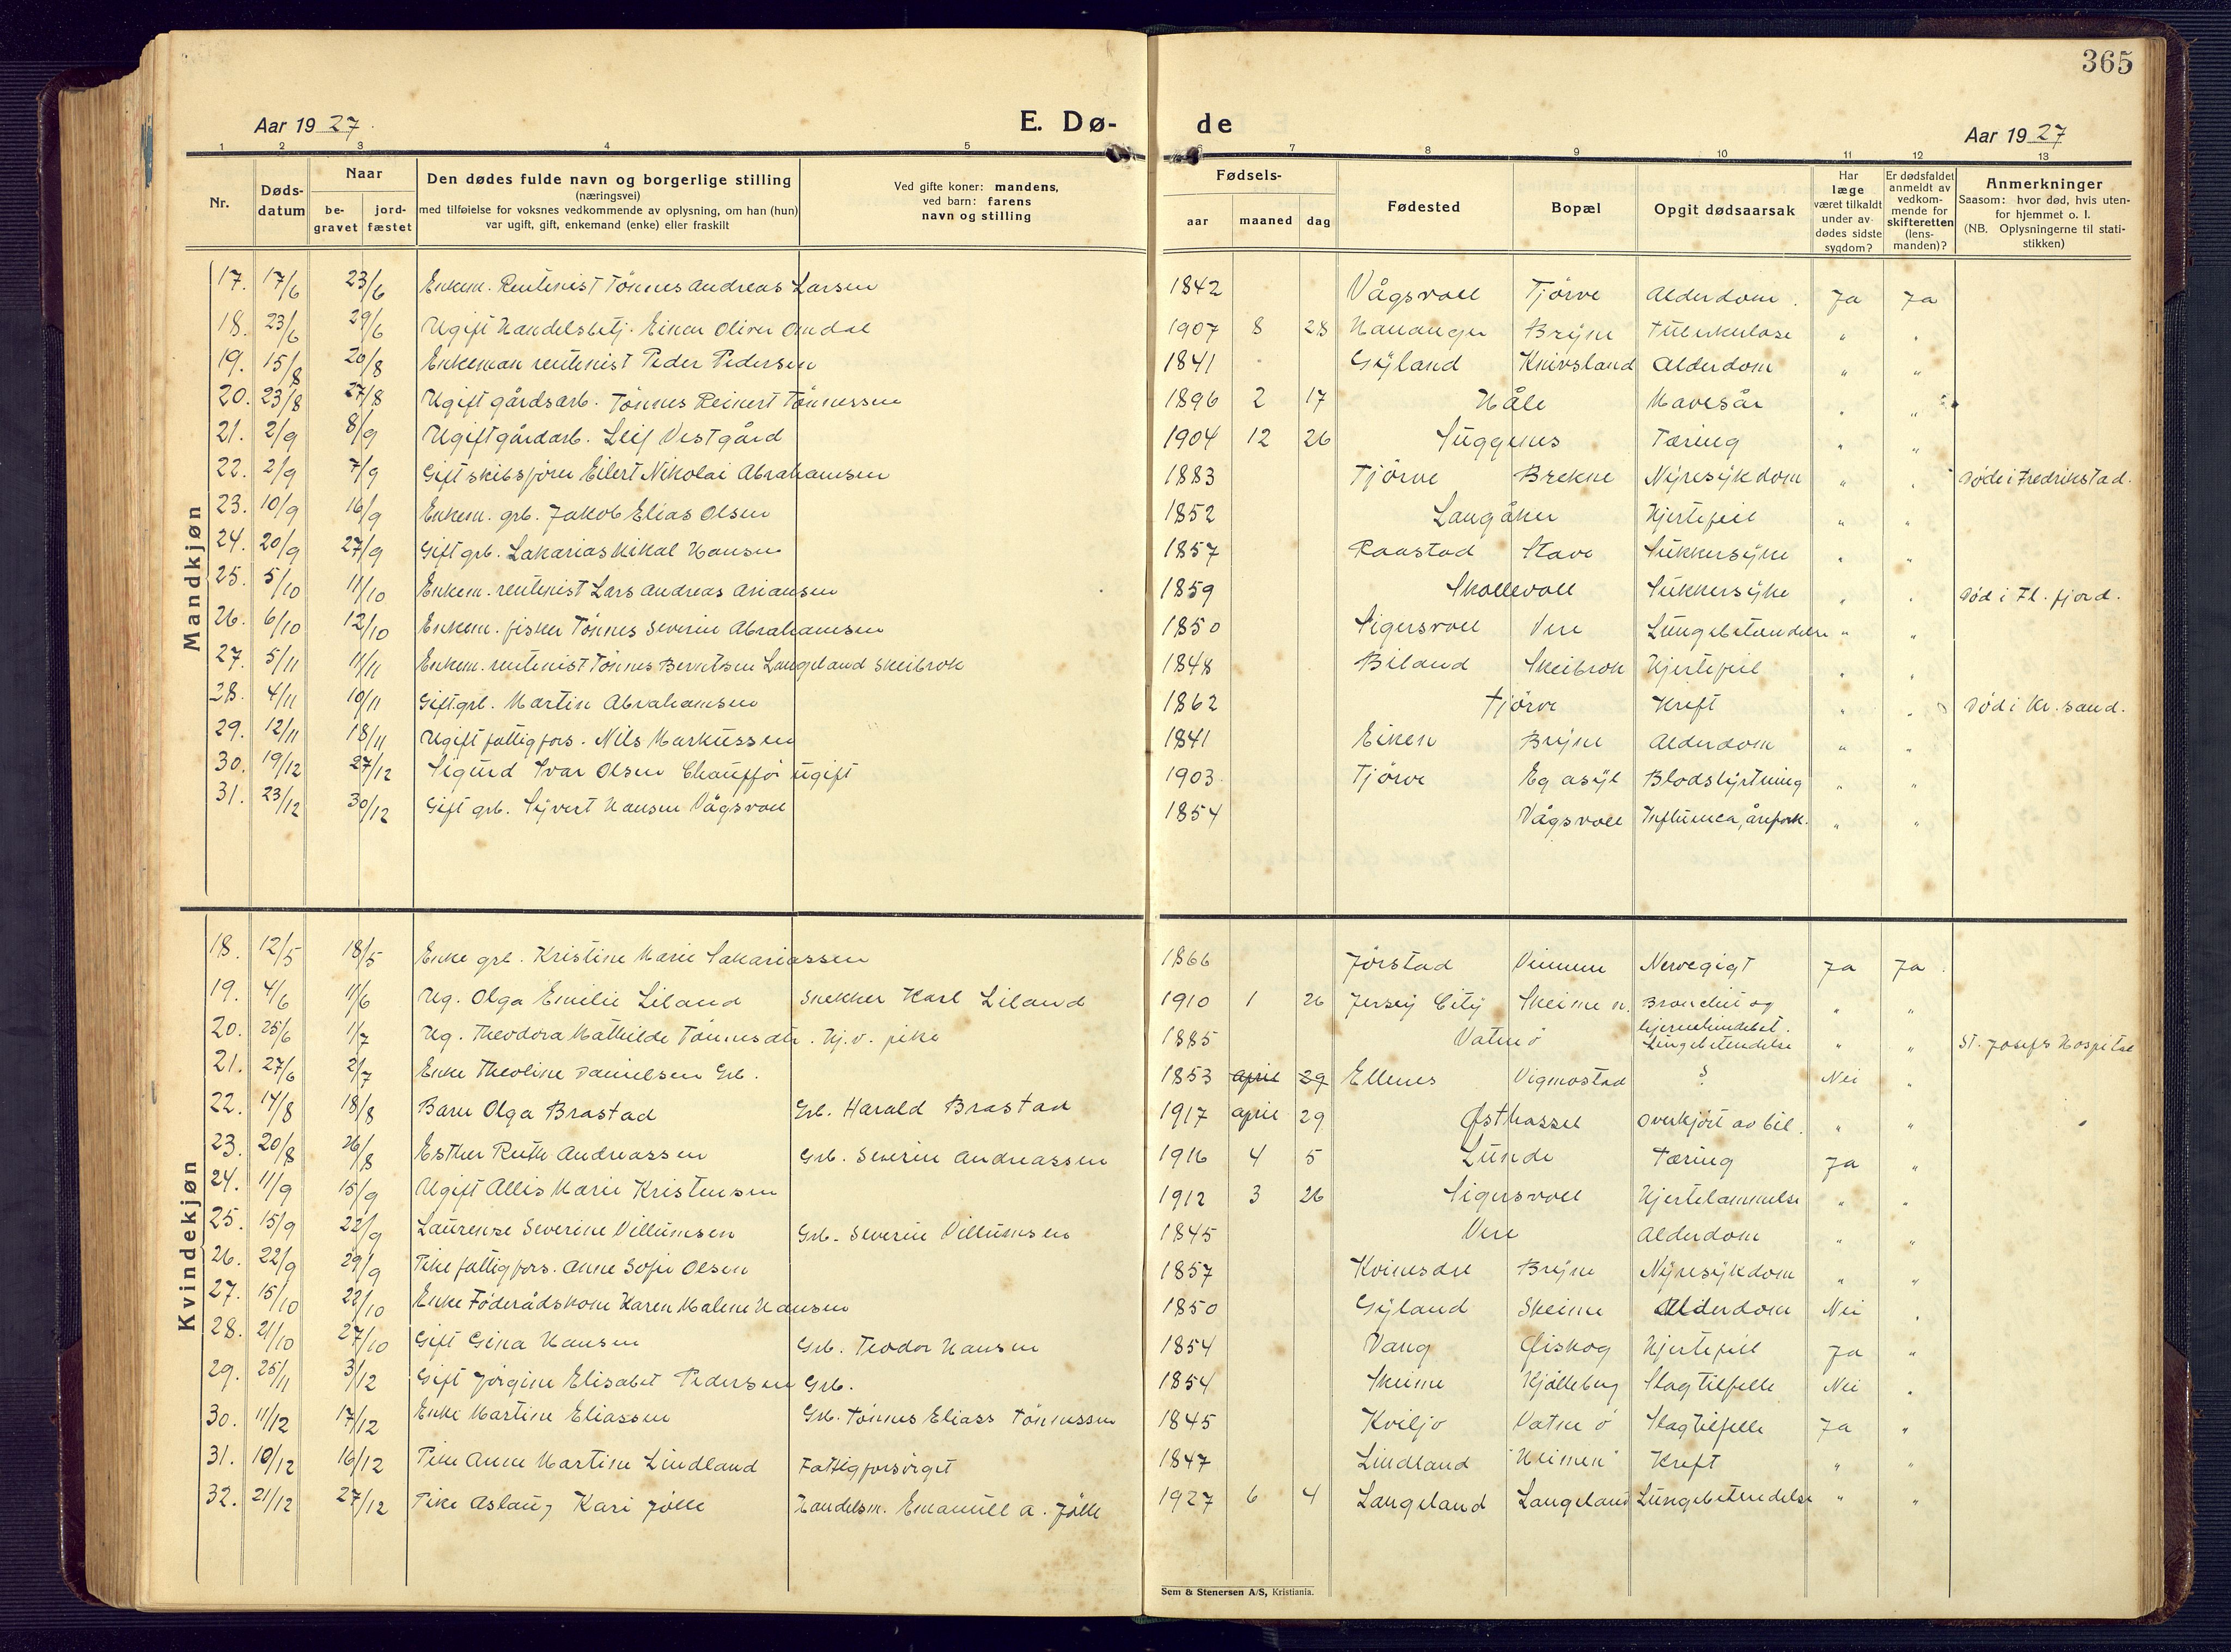 365
Aar 1927.
E. Dø-
de
Aar 1927
1 2 3 4 5 6 7 8 9 10 11 12 13
Nr.
Døds-
datum
Naar
be-
gravet
jord-
fæstet
Den dødes fulde navn og borgerlige stilling
(næringsvei)
med tilføielse for voksnes vedkommende av oplysning, om han (hun)
var ugift, gift, enkemand (enke) eller fraskilt
Ved gifte koner: mandens,
ved barn: farens
navn og stilling
Fødsels-
aar maaned dag
Fødested
Bopæl
Opgit dødsaarsak
Har
læge
været tilkaldt
under av-
dødes sidste
sygdom?
Er dødsfaldet
anmeldt av
vedkom-
mende for
skifteretten
(lens-
manden)?
Anmerkninger
Saasom: hvor død, hvis uten-
for hjemmet o. l.
(NB. Oplysningerne til stati-
stikken)
Mandkjøn
17. 17/6 23/6 Enkem. Rentenist Tönnes Andreas Larsen 1842 Vågsvoll Tjörve Alderdom. Ja Ja
18. 23/6 29/6 Ugift Handelsbetj. Einar Oliver Omdal 1907 8 28 Hananger Brÿne Tüberkulose " "
19. 15/8 20/8 Enkeman rentenist Peder Pedersen 1841 Gÿland Knivsland Alderdom " "
20. 23/8 27/8 Ugift gårdsarb. Tönnes Reinert Tönnessen 1896 2 17 Håle Mavesår " "
21. 2/9 8/9 Ugift gårdarb. Leif Vestgård 1904 12 26 Süggenes Tæring " "
22. 2/9 7/9 Gift skibsförer Eilert Nikolai Abrahamsen 1883 Tjörve Brekne Nÿresÿkdom " " Döde i Fredrikstad.
23. 10/9 16/9 Enkem. grb. Jakob Elias Olsen 1852 Langåker Hjertefeil " "
24. 20/9 27/9 Gift grb. Sakarias Mikal Hansen 1857 Raastad Stave Sükkersÿke " "
25. 5/10 11/10 Enkem. rentenist Lars Andreas Ariansen 1859 Skollevoll Sükkersÿke " " Död i Fl. fjord.
26. 6/10 12/10 Enkem. fisker Tönnes Severin Abrahamsen 1850 Sigersvoll Vere Lüngebetændelse " "
27. 5/11 11/11 Enkem. rentenist Tönnes Berntsen Langeland Skeibrok 1848 Biland Skeibrok Hjertefeil " "
28. 4/11 10/11 Gift grb. Martin Abrahamsen 1862 Tjörve Kreft " " Död i Kr. sand.
29. 12/11 18/11 Ugift fattigfors. Nils Markussen 1841 Eiken Brÿne Alderdom " "
30. 19/12 27/12 Sigurd Ivar Olsen Chaufför ugift 1903 Tjörve Eg asÿl Blodstÿrtning " "
31. 23/12 30/12 Gift grb. Sÿvert Hansen Vågsvoll 1854 Vågsvoll Influenca, årefork. " "
Kvindekjøn
18. 12/5 18/5 Enke grb. Kristine Marie Sakariassen 1866 Jörstad Vinnem Nervegigt Ja Ja
19. 4/6 11/6 Ug. Olga Emilie Liland Snekker Karl Liland 1910 1 26 Jersey City Skeime n. Bronchit og
hjernehindebet. " "
20. 25/6 1/7 Ug. Theodora Mathilde Tönnesdtr. Hj. v. pike 1885 Vatne ö Lüngebetendelse " " St. Josefs Hospital
21. 27/6 2/7 Enke Theoline Danielsen Grb. 1853 april 29 Ellenes Vigmostad ? Nei "
22. 14/8 18/8 Barn Olga Brastad Grb. Harald Brastad 1917 april 29 Østhassel Overkjört av bil. " "
23. 20/8 26/8 Esther Ruth Andreassen Grb. Severin Andreassen 1916 4 5 Lünde Tæring Ja "
24. 11/9 15/9 Ugift Allis Marie Kristensen 1912 3 26 Sigersvoll Hjertelammelse " "
25. 15/9 22/9 Laurense Severine Villumsen Grb. Severin Villumsen 1845 Vere Alderdom " "
26. 22/9 29/9 Pike fattigfors. Anne Sofie Olsen 1857 Kvinesdal Brÿne Nÿresÿkdom " "
27. 15/10 22/10 Enke Föderådskone Karen Malene Hansen 1850 Gÿland Skeime Alderdom Nei "
28. 21/10 27/10 Gift Gina Hansen Grb. Teodor Hansen 1854 Vang Øiskog Hjertefeil Ja "
29. 25/11 3/12 Gift Jörgine Elisabet Pedersen Grb. 1854 Skeime Kjölleberg Slagtilfelle Nei "
30. 11/12 17/12 Enke Martine Eliassen Grb. Tönnes Eliass Tönnessen 1845 Kviljo Vatne ö Slagtilfelle Ja "
31. 10/12 16/12 Pike Anne Martine Lindland Fattigforsörget 1847 Lindland "Heimen" Kreft " "
32. 21/12 27/12 Pike Aslaug Kari Jölle Handelsm. Emanuel A. Jölle 1927 6 4 Langeland Langeland Lüngebetendelse " "
Sem & Stenersen A/S, Kristiania.